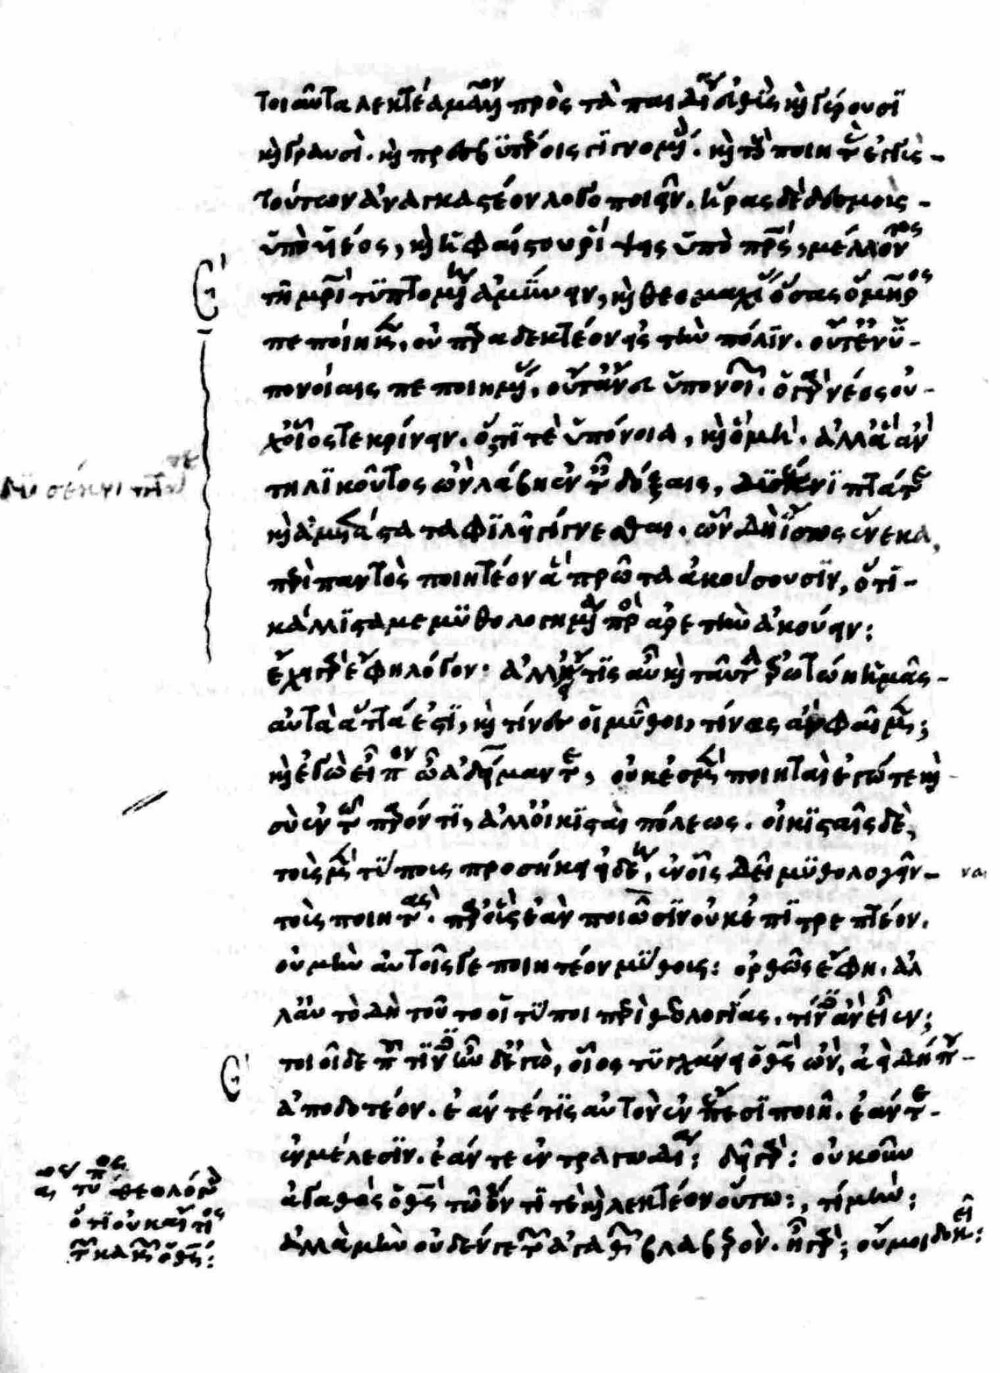 τοιαῦτα λεκτέα μᾶλλον πρὸς τὰ παιδία εὐθὺς καὶ γέρουσι
καὶ γραυσὶ. καὶ πρεσβυτέροις γιγνομένοις. καὶ τοὺς ποιητὰς ἐγγὺς
τούτων ἀναγκαστέον λογοποιεῖν. ἥρας δὲ δεσμοὺς
ὑπὸ ὑέος, καὶ ἡφαίστου ῥίψεις ὑπὸ πατρὸς, μέλλοντος
τῇ μητρὶ τυπτομένῃ ἀμύνειν, καὶ θεομαχίας ὅσας ὅμηρος
πεποίηκεν, οὐ παραδεκτέον εἰς τὴν πόλιν. οὔτ' ἐν ὑ-
πονοίαις πεποιημένας, οὔτε ἄνευ ὑπονοιῶν. ὁ γὰρ νέος οὐ-
χ οἷός τε κρίνειν. ὅ,τι τε ὑπόνοια, καὶ ὃ μή. ἀλλ' ἃ ἂν
τηλικοῦτος ὢν λάβῃ ἐν ταῖς δόξαις, δυσέκνιπτά τε
καὶ ἀμετάστατα φιλεῖ γίγνεσθαι. ὧν δὴ ἴσως ἕνεκα,
περὶ παντὸς ποιητέον ἃ πρῶτα ἀκούουσιν, ὅτι
κάλλιστα μεμυθολογημένα πρὸς ἀρετὴν ἀκούειν:
ἔχει γὰρ ἔφη λόγον: ἀλλ' εἴ τις αὖ καὶ ταῦτα ἐρωτώῃ ἡμᾶς
αὐτὰ ἅττα ἐστί, καὶ τίνες οἱ μῦθοι, τίνας ἂν φαῖμεν;
καὶ ἐγὼ εἶπον ὦ ἀδείμαντε, οὐκ ἐσμὲν ποιηταὶ ἐγώ τε καὶ
σὺ ἐν τῷ παρόντι, ἀλλ' οἰκισταὶ πόλεως. οἰκισταῖς δὲ,
τοὺς μὲν τύπους προσήκει εἰδέναι, ἐν οἷς δεῖ μυθολογεῖν
τοὺς ποιητάς. παρ' οὓς ἐὰν ποιῶσιν οὐκ ἐπιτρεπτέον.
οὐ μὴν αὐτοῖς γε ποιητέον μύθους: ὀρθῶς ἔφη. ἀλ
λ' αὐτὸ δὴ τοῦτο οἱ τύποι περὶ θεολογίας. τίνες ἂν εἶεν;
τοιοίδε που τινὲς ἦν δ' ἐγὼ, οἷος τυγχάνει ὁ θεὸς ὢν, ἀεὶ δήπου
ἀποδοτέον. ἐάν τέ τις αὐτὸν ἐν ἔπεσι ποιῇ. ἐάν τε
ἐν μέλεσιν. ἐάν τε ἐν τραγωδίᾳ: δεῖ γάρ: οὐκοῦν
ἀγαθὸς ὁ θεὸς τῷ ὄντι τε καὶ λεκτέον οὕτω:, τί μήν;
ἀλλὰ μὴν οὐδέν γε τῶν ἀγαθῶν βλαβερόν. ἦ γάρ; οὔ μοι δοκεῖ:
δυσέκνιπτα
αος τύπος
θεολογίας
ὅτι οὐκ αἴτιος
τῶν κακῶν ὁ θεός: